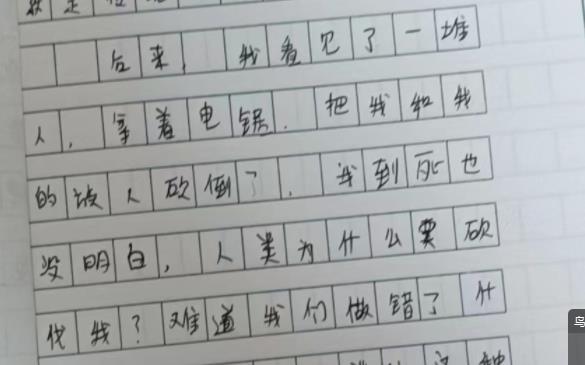 后来，我看见了一堆
人，拿着电锯，把我和我
的族人砍倒了，我到死也
没明白，人类为什么要砍
伐我？难道我们做错了什